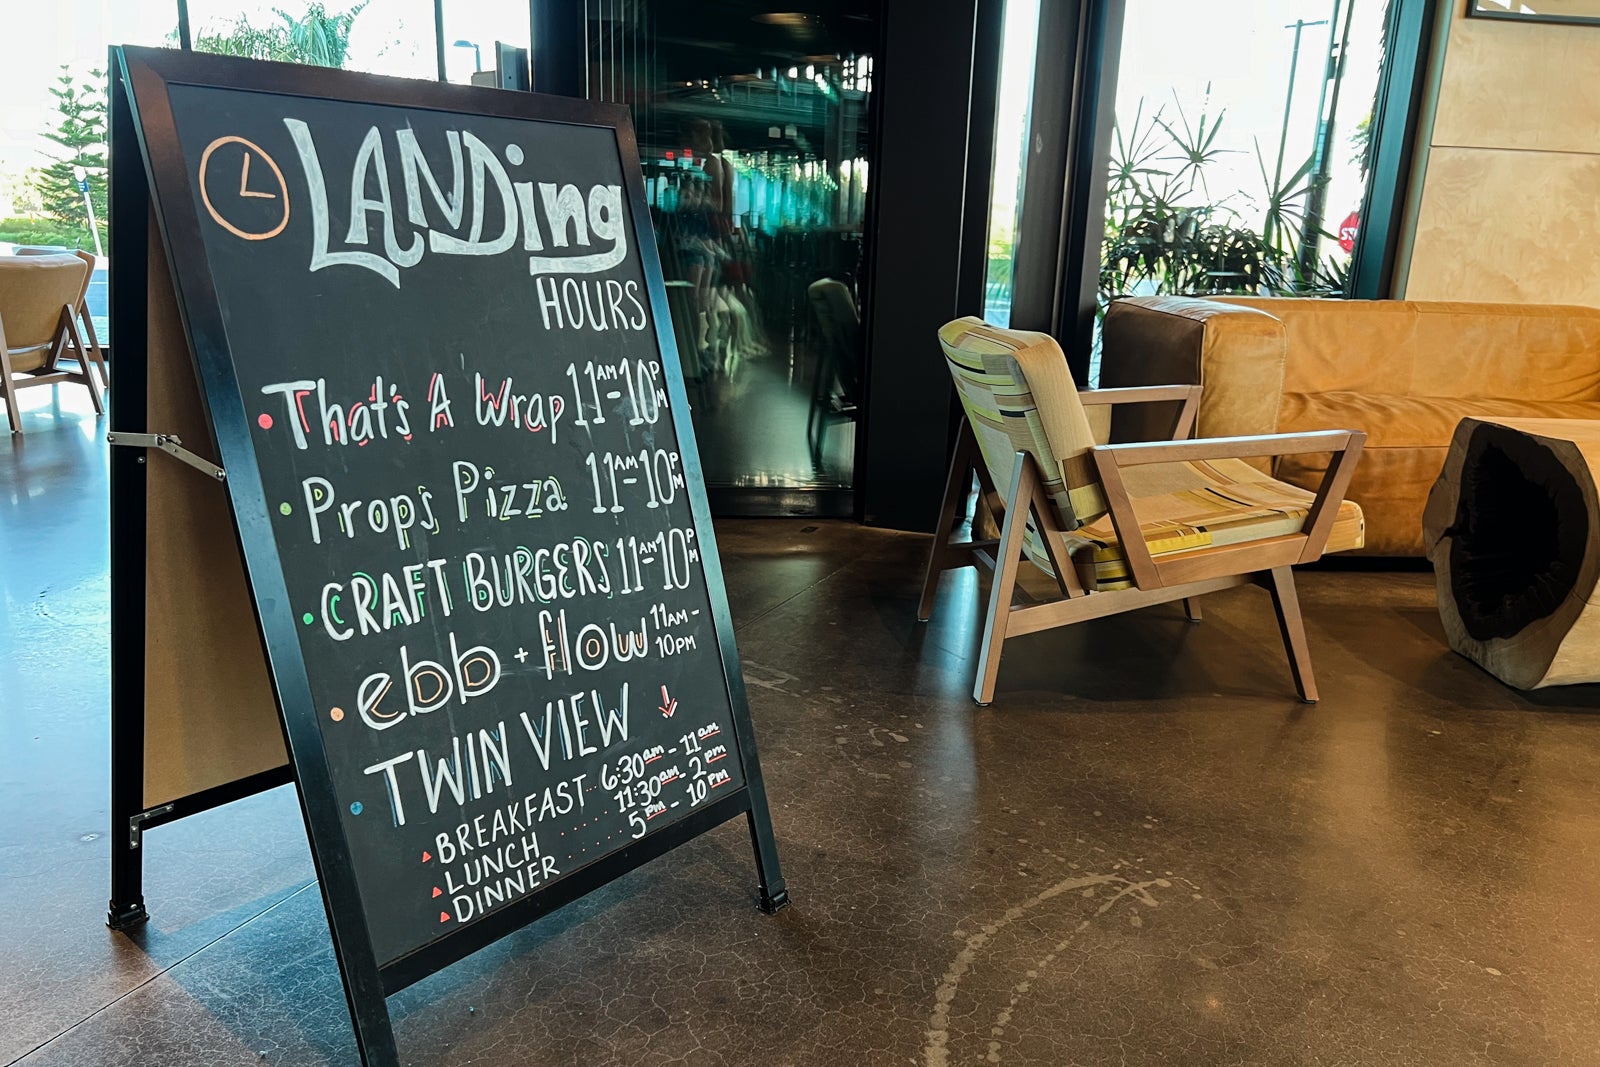 LANDing
HOURS
That's A Wrap 11AM-10PM
Props Pizza 11AM-10PM
CRAFT BURGERS 11AM-10PM
ebb + flow 11AM-10PM
TWIN VIEW
BREAKFAST 6:30am - 11am
LUNCH 11:30am - 2pm
DINNER 5pm - 10pm